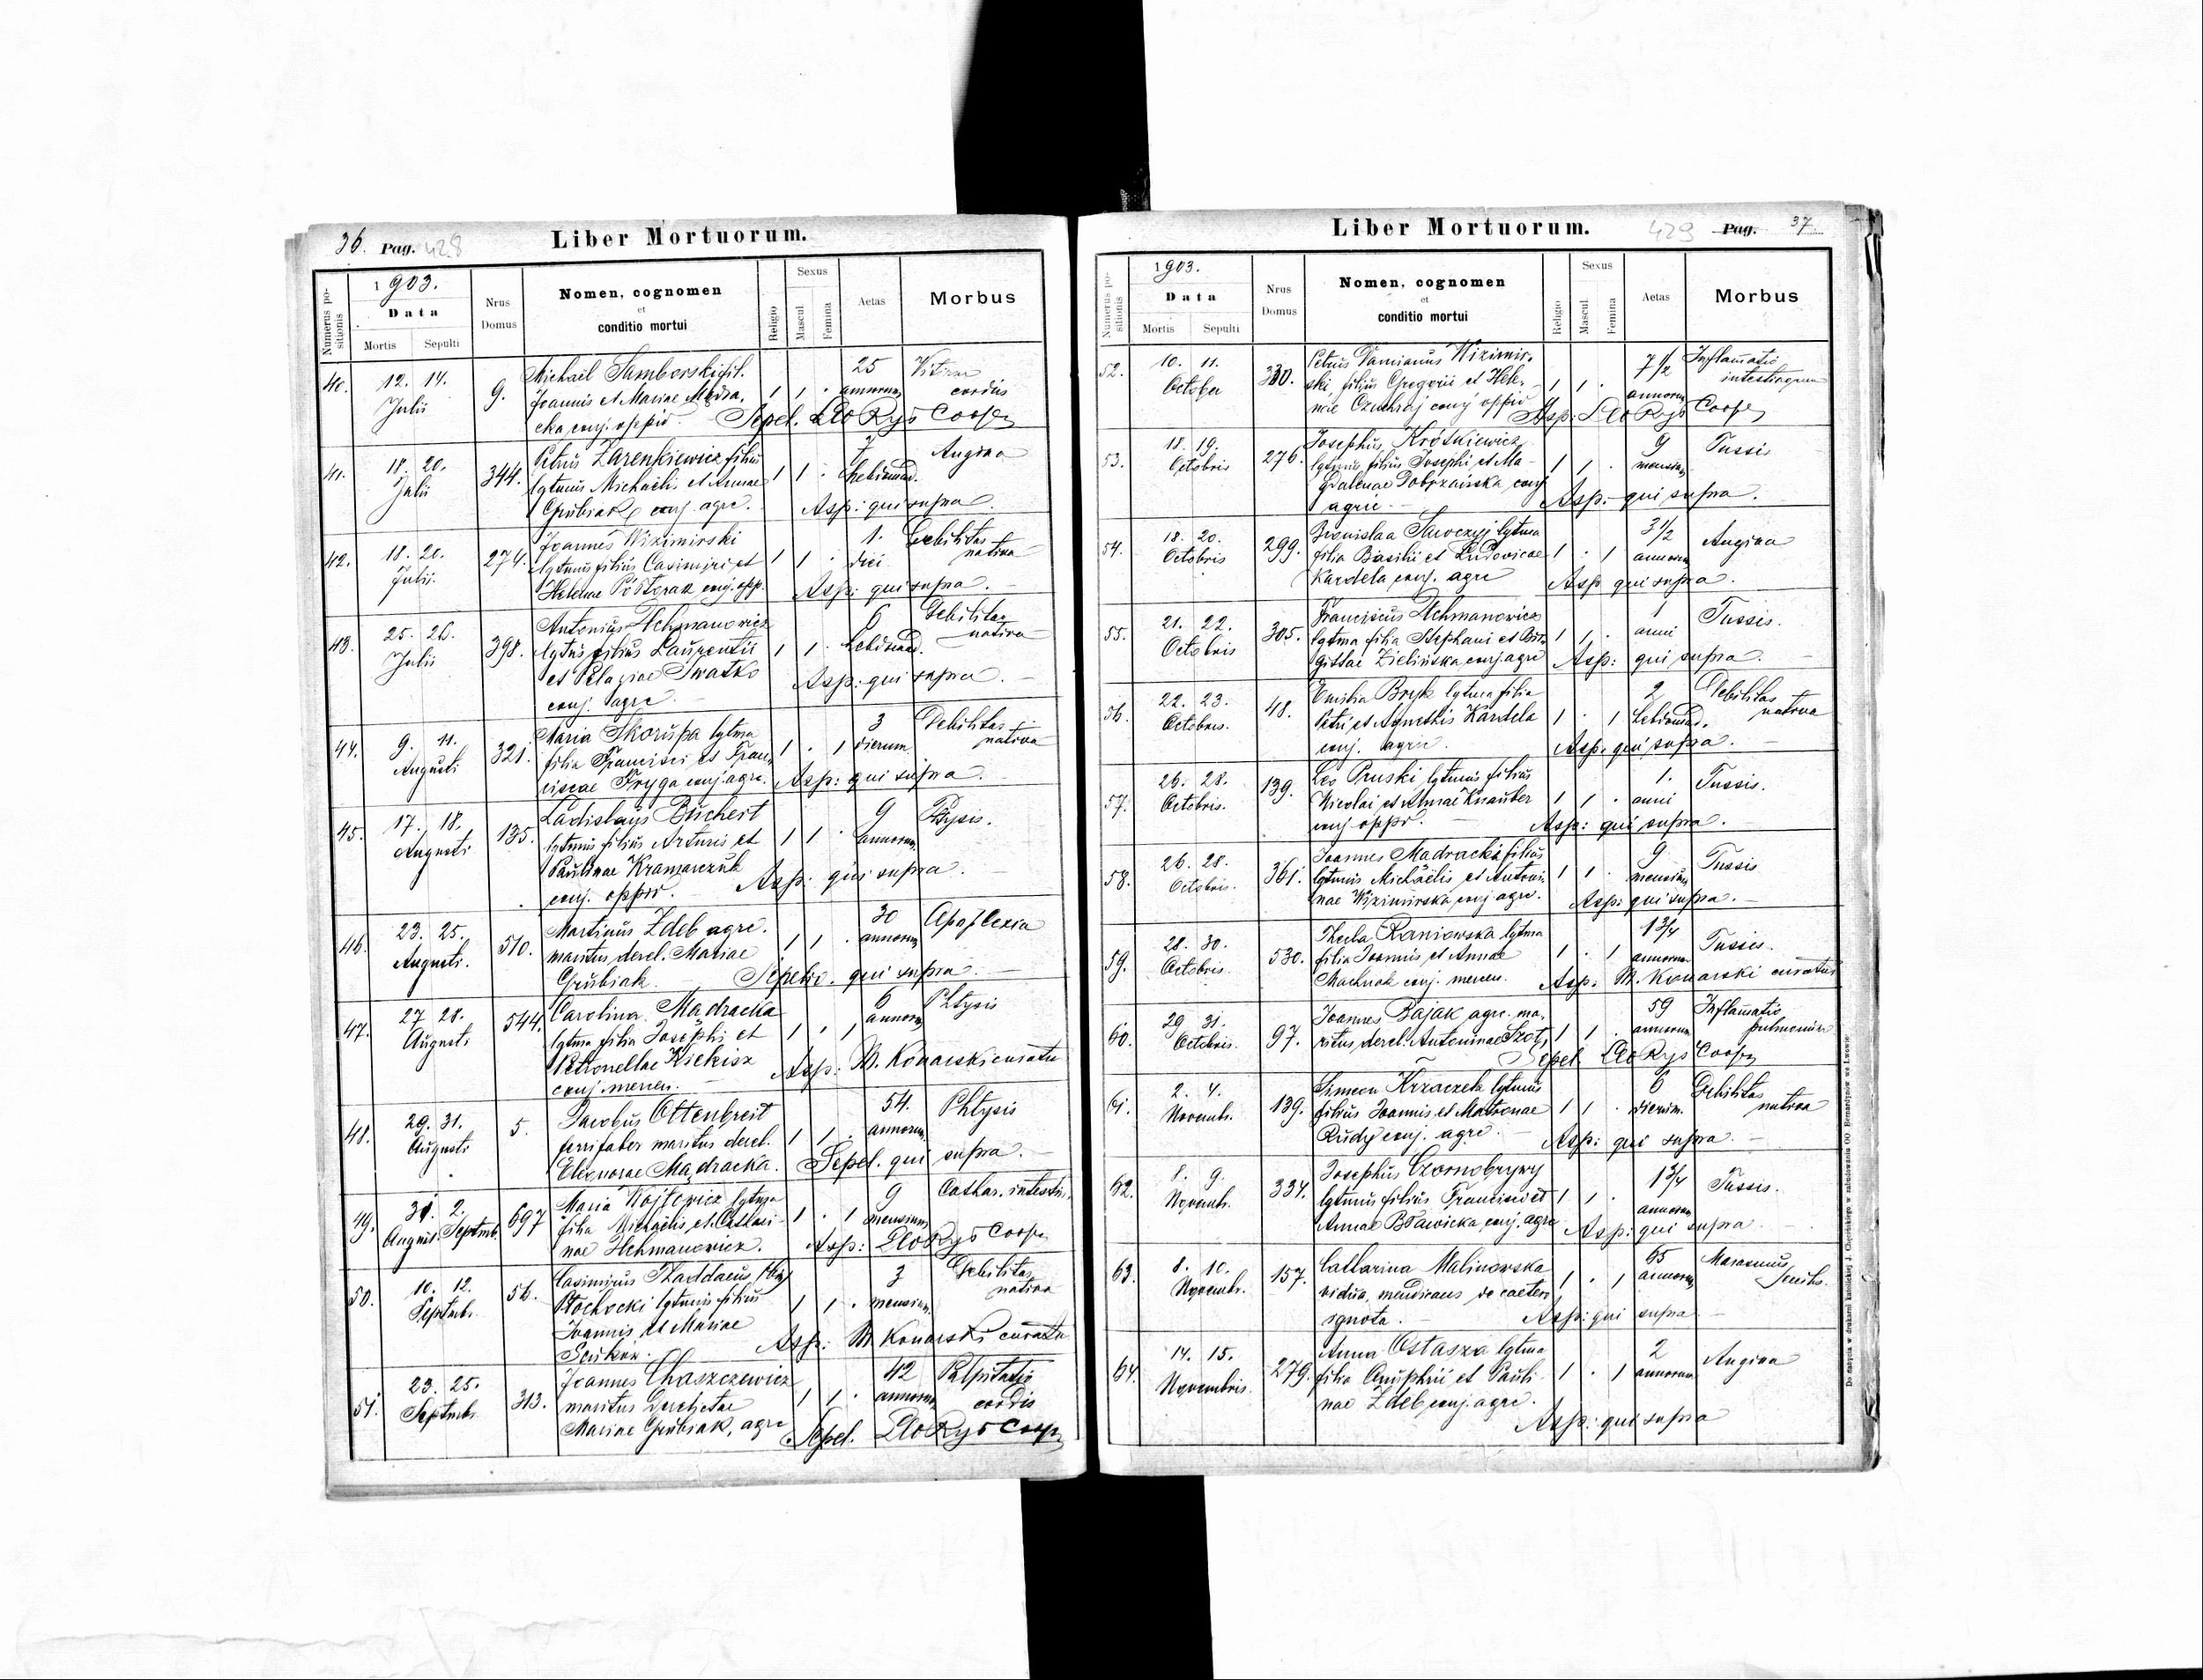 36. Pag. 428
Liber Mortuorum.
Numerus positionis
1903.
Data
Mortis Sepulti
Nrus Domus
Nomen, cognomen
et
conditio mortui
Religio
Sexus
Mascul.
Femina
Aetas
Morbus
40. 12. 14. Julii 9.
Michael Samborski fil.
Joannis et Mariae Mądra-
cka conj. oppid.
1 1 · 25 annorum Vitium cordis
Sepel. Leo Rys Coop
41. 18. 20. Julii 344.
Petrus Zarenkiewicz filius
lgtmus Michaelis et Annae
Grubiak conj. agrc.
1 1 · 7 hebdomad. Angina
Asp: qui supra.
42. 18. 20. Julii. 274.
Joannes Wizimirski
lgtmus filius Casimiri et
Helenae Półtorak conj. opp.
1 1 · 1. diei Debilitas nativa
Asp: qui supra.
43. 25. 26. Julii 398.
Antonius Hehmanowicz
lgtmus filius Laurentii
et Pelagiae Iwaśko
conj. agrc.
1 1 · 6 hebdomad. Debilitas nativa
Asp: qui supra.
44. 9. 11. Augusti 321.
Maria Skorupa lgtma
filia Francisci et Fran-
ciscae Fryga conj. agrc.
1 · 1 3 dierum Debilitas nativa
Asp: qui supra.
45. 17. 18. Augusti 135.
Ladislaus Buchert
lgtmus filius Arturis et
Paulinae Kramarczuk
conj. oppid.
1 1 · 9 annorum
Asp: qui supra.
46. 23. 25. Augusti. 510.
Martinus Zdeb agrc.
maritus derel. Mariae
Grubiak.
1 1 · 30 annorum Apoplexia
Sepeliv. qui supra.
47. 27 28. Augusti 544.
Carolina Mądracka
lgtma filia Josephi et
Petronellae Kiekisz
conj. mercen.
1 · 1 6 annorum Phtysis
Asp: M. Konarski curatus
48. 29. 31. Augusti 5.
Jacobus Ottenbreit
ferrifaber maritus derel.
Eleonorae Mądracka.
1 1 · 54. annorum Phtysis
Sepel. qui supra.
49. 31. August. 2. Septmb. 697
Maria Wojtowicz lgtma
filia Michaelis et Cathari-
nae Hehmanowicz.
1 · 1 9 mensium Cathar. intestin.
Asp: Leo Rys Coop
50. 10. 12. Septmb. 56.
Casimirus Thaddaeus
Płochocki lgtmus filius
Joannis et Mariae
1 1 · 3 mensium Debilitas nativa
Asp: M. Konarski curatus
51. 23. 25. Septmb. 313.
Joannes Chaszczewicz
maritus derelictae
Mariae Grubiak, agrc
1 1 · 42 annorum Palpitatio cordis
Sepel. Leo Rys Coop
Liber Mortuorum.
429 Pag. 37.
Numerus positionis
1903.
Data
Mortis Sepulti
Nrus Domus
Nomen, cognomen
et
conditio mortui
Religio
Sexus
Mascul.
Femina
Aetas
Morbus
52. 10. 11. October 330.
Petrus Damianus Wizimir-
ski, filius Gregorii et Hele-
nae Czuchraj conj oppid
1 1 · 7 1/2 annorum Inflamatio intestinorum
Asp: Leo Rys Coop
53. 18. 19. Octobris 276.
Josephus Krótkiewicz
lgtmus filius Josephi et Ma-
gdalenae Dobrzańska conj
agric.
1 1 · 9 mensium Tussis
Asp: qui supra.
54. 18. 20. Octobris 299.
Bronislaa Saroczyj lgtma
filia Basilii et Ludovicae
Kardela conj. agrc
1 · 1 3 1/2 annorum Angina
Asp qui supra.
55. 21. 22. Octobris 305.
Franciscus Hehmanowicz
lgtma filia Stephani et Bri-
gittae Zielińska conj. agrc
1 1 · 1 anni Tussis.
Asp: qui supra.
56. 22. 23. Octobris. 48.
Emilia Bryk lgtma filia
Petri et Agnethis Kardela
conj. agric.
1 · 1 2 hebdomad. Debilitas nativa
Asp: qui supra.
57. 26. 28. Octobris. 139.
Leo Pruski lgtmus filius
Nicolai et Annae Knauber
conj oppi.
1 1 · 1. anni Tussis.
Asp: qui supra.
58. 26. 28. Octobris. 361.
Joannes Mądracki filius
lgtmus Michaelis et Antoni-
nae Wizimirska conj agrc.
1 1 · 9. mensium Tussis
Asp: qui supra.
59. 28. 30. Octobris. 530.
Thecla Raniowska lgtma
filia Joannis et Annae
Machnak conj. mercen.
1 · 1 1 3/4 annorum Tussis.
Asp: M. Konarski curatus
60. 29. 31. Octobris. 97.
Joannes Bajak agrc. ma-
ritus derel. Antoninae Szot,
1 1 · 59 annorum Inflamatio pulmonum
Sepel Leo Rys Coop
61. 2. 4. Novemb. 139.
Simeon Krzaczek lgtmus
filius Joannis et Matronae
Rudy conj. agrc.
1 1 · 6 dierum. Debilitas nativa
Asp: qui supra.
62. 8. 9. Novemb. 334.
Josephus Czornobrywy
lgtmus filius Francisci et
Annae Bławicka conj. agrc
1 1 · 1 3/4 annorum Tussis.
Asp: qui supra.
63. 8. 10. Novemb. 157.
Catharina Malinowska
vidua, mendicans de caetero
ignota.
1 · 1 65 annorum Marasmus Senilis.
Asp: qui supra
64. 14. 15. Novembris. 279.
Anna Ostasza lgtma
filia Onuphrii et Pauli-
nae Zdeb conj. agrc.
1 · 1 2 annorum Angina
Asp: qui supra
Do nabycia w drukarni katolickiej J. Chęcińskiego w zabudowaniu OO. Bernardynów we Lwowie